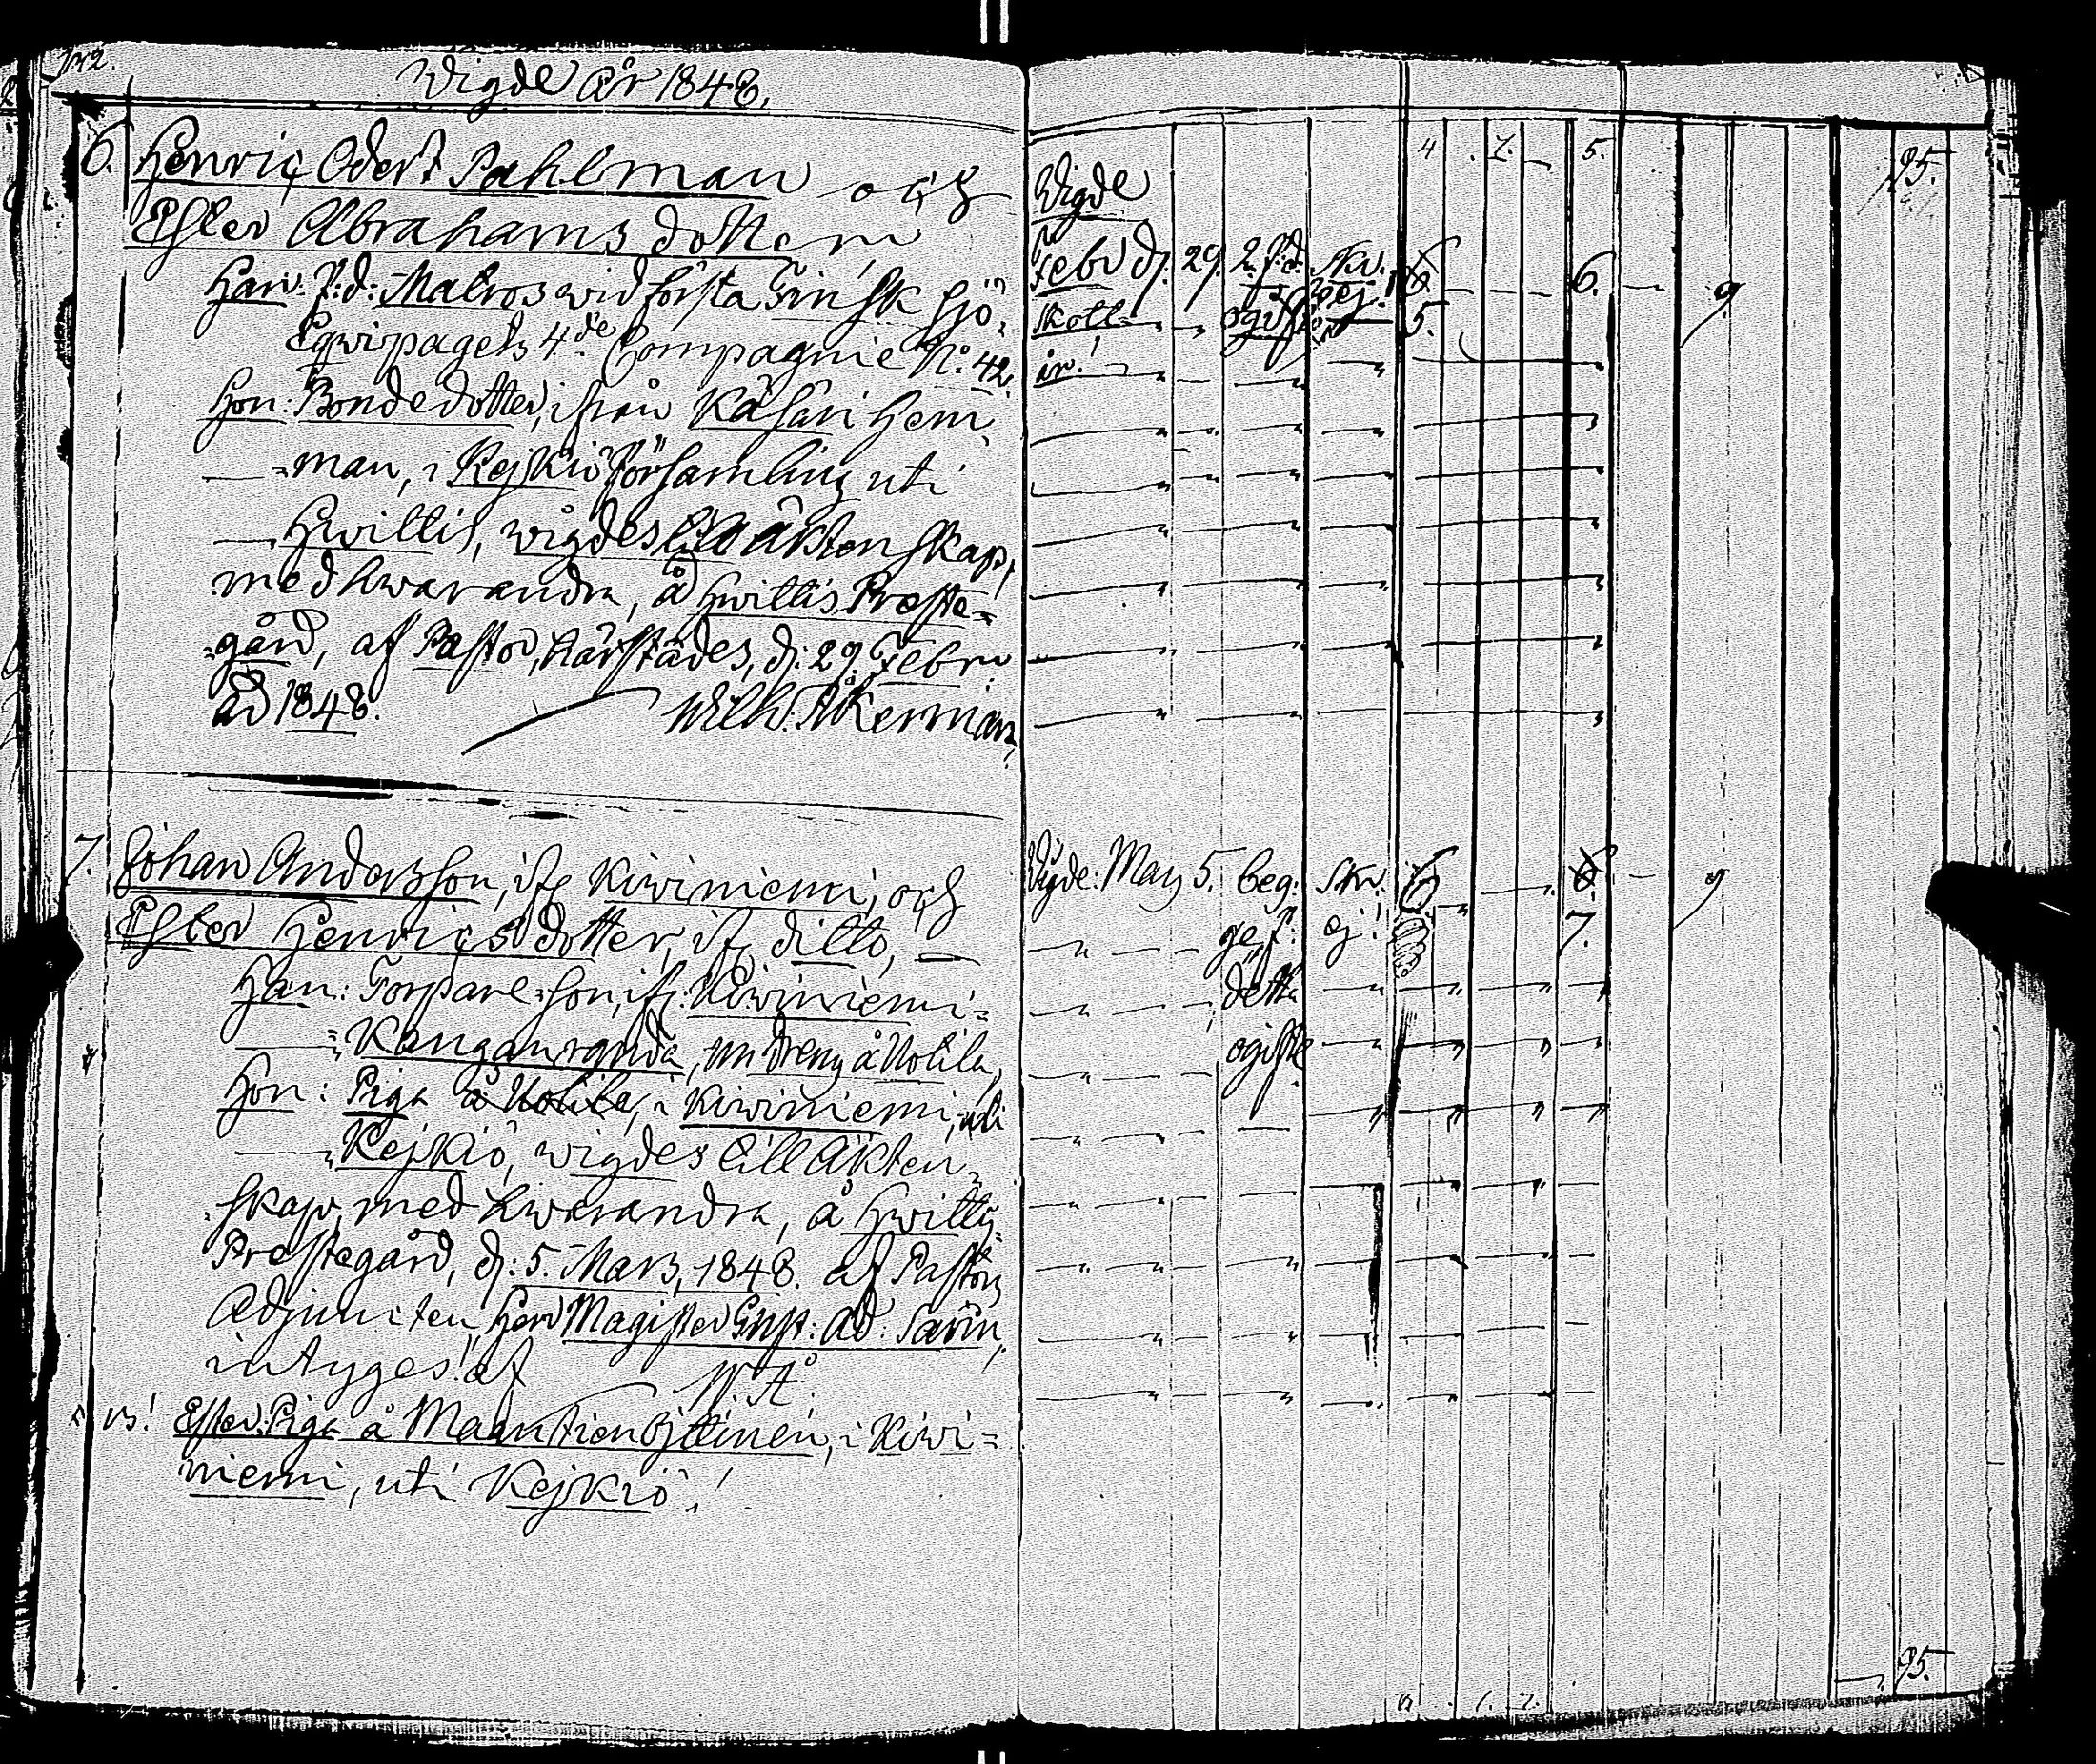 Wigde år 1848.
6. Henric Edert Pahlman och
Ester Abrahams dotter,
Han: f: d: Matros wid första Finsk Sjö-
Eqwipagets 4de Compagnie No: 42,
Hon: Bondedotter, ifrån Käsäri Hem-
man, i Kejkiö Församling uti
Hwittis, wigdes till äktenskap,
med hwarandra, å Hwittis Preste-
gård, af Pastor, härstädes, d: 29. Febru
år 1848. Wilh. Åkerman,
7. Johan Andersson, ifr Kiwiniemi, och
Ester Henrics dotter, ifr ditto,
Han: Torpare son, ifr: Kiwiniemi-
nu dreng å Uotila,
Hon: Piga å Uotila, i Kiwiniemi, uti
Kejkiö, wigdes till Äkten-
skap, med hwarandra, å Hwittis
Prestegård, d: 5. Mars, 1848. af Pastors
Adjuncten, Herr Magister Gust: Ad: Sarin,
intyges! af W. Å.
Ester: Piga å i Kiwi-
niemi, uti Kejkiö!
4 . 1. 5. 95.
Wigde
Febr d. 29. 2. skr. 6. 9
Skott ogift ej! 5.
år!
Wigde: Mars 5. beg: skr. 6 6. 9
ge f: ej! 7.
detta
ogifte
95.